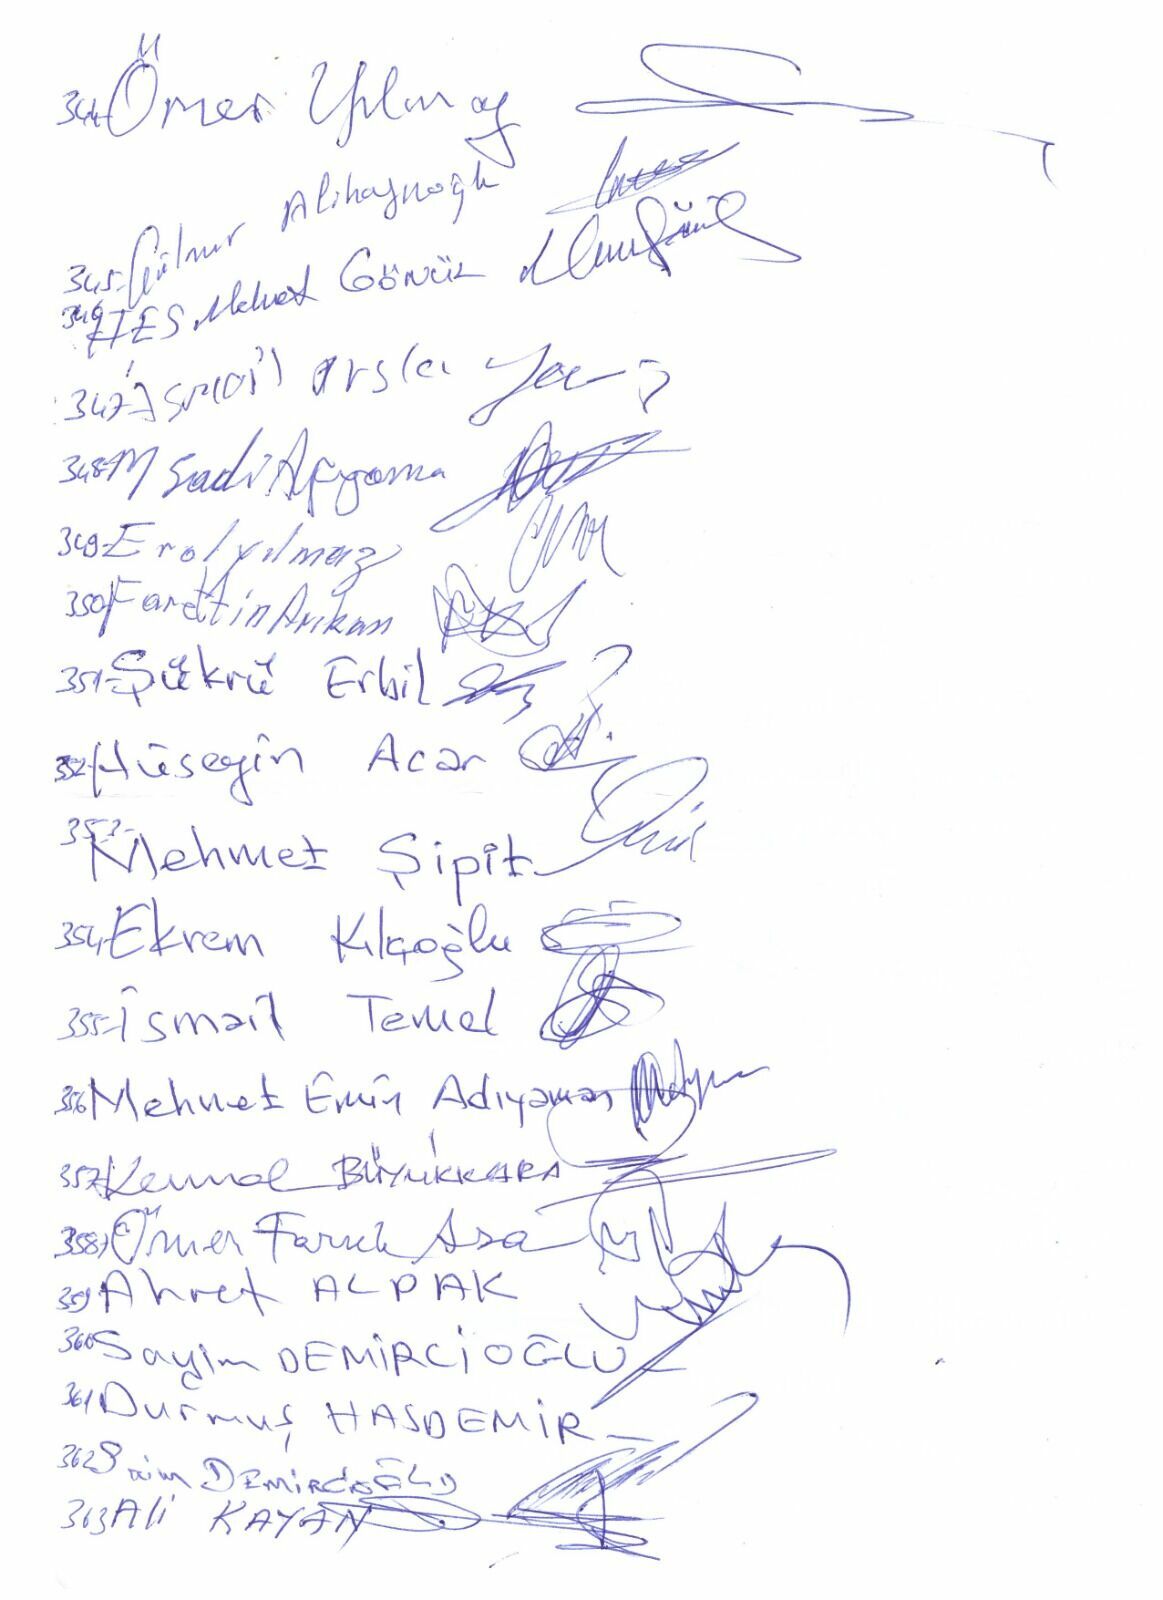 344- Ömer Yılmaz
345- Gülnur Alihaynoğlu
346- Mehmet GÖNÜL
347- İsmail Arslan
348- M Sadi
349- Erol Yılmaz
350- Farettin Arıkan
351- Şükrü Erbil
352- Hüseyin Acar
353- Mehmet Şipit
354- Ekrem Kılçoğlu
355- İsmail Temel
356- Mehmet Emin Adıyaman
357- Kemal BÜYÜKKARA
358- Ömer Faruk Asa
359- Ahmet ALPAK
360- Sayim DEMİRCİOĞLU
361- Durmuş HASDEMİR
362- Saim DEMİRCİOĞLU
363 Ali KAYAN